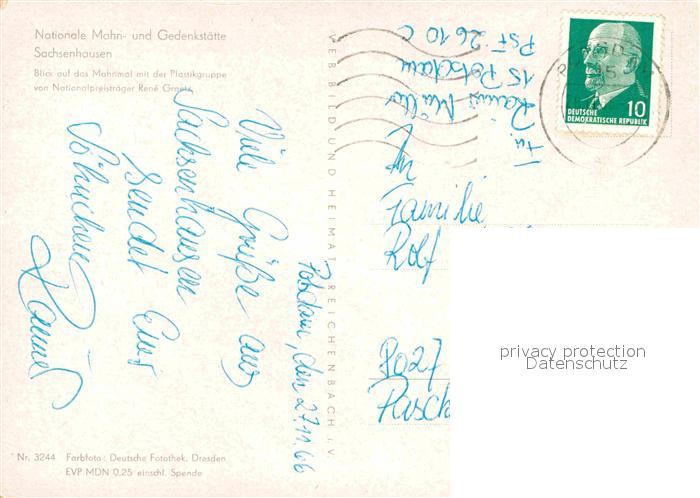 Nationale Mahn- und Gedenkstätte
Sachsenhausen
Blick auf das Mahnmal mit der Plastikgruppe
von Nationalpreisträger René Graetz
Potsdam, den 27.11.66
Viele Grüße aus
Sachsenhausen
sendet Euer
Söhnchen
Rainer
VEB BILD UND HEIMAT REICHENBACH I. V.
Rainer Müller
15 Potsdam
PSF 2610 C
An
Familie
Rolf
8027
DEUTSCHE
DEMOKRATISCHE REPUBLIK
10
privacy protection
Datenschutz
Nr. 3244 Farbfoto: Deutsche Fotothek, Dresden
EVP MDN 0,25 einschl. Spende